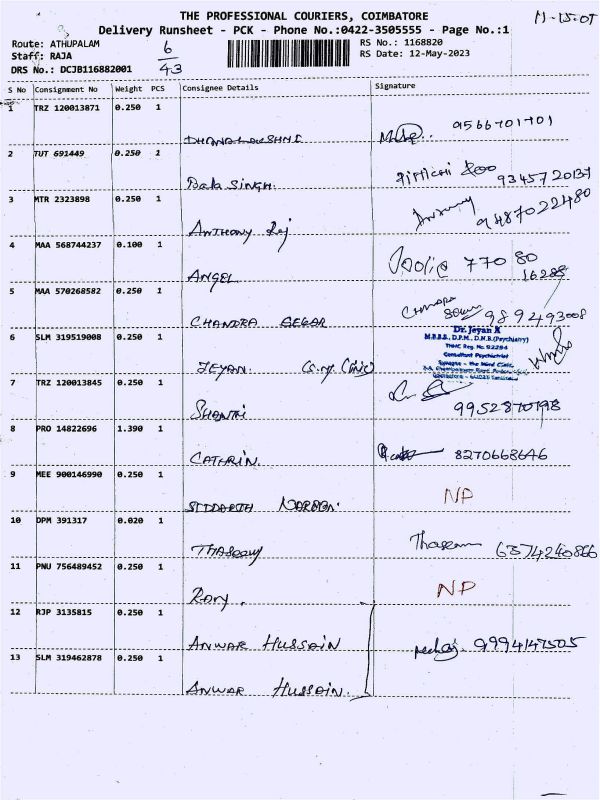 THE PROFESSIONAL COURIERS, COIMBATORE
11-15-05
Delivery Runsheet - PCK - Phone No.:0422-3505555 - Page No.:1
Route: ATHUPALAM
6
43
RS No.: 1168820
Staff: RAJA
RS Date: 12-May-2023
DRS No.: DCJB116882001
S No Consignment No Weight PCS Consignee Details Signature
1 TRZ 120013871 0.250 1
DHANALAKSHMI 9566701701
2 TUT 691449 0.250 1
Bala Singh. 9345720137
3 MTR 2323898 0.250 1
Anthony Raj 9487022480
4 MAA 568744237 0.100 1
ANGEL 77080
16288
5 MAA 570268582 0.250 1
CHANDRA SEGAR 9892493008
6 SLM 319519008 0.250 1
Dr. Jeyan K
M.B.B.S., D.P.M., D.N.B.(Psychiatry)
TNMC Reg. No. 92294
Consultant Psychiatrist
JEYAN.
7 TRZ 120013845 0.250 1
SHANTHI 9952870798
8 PRO 14822696 1.390 1
CATHRIN. 8270668646
9 MEE 900146990 0.250 1
SIDDARTH NP
10 DPM 391317 0.020 1
Thaseem 6374240866
11 PNU 756489452 0.250 1
Rony. NP
12 RJP 3135815 0.250 1
ANWAR HUSSAIN 9994147505
13 SLM 319462878 0.250 1
ANWAR HUSSAIN.